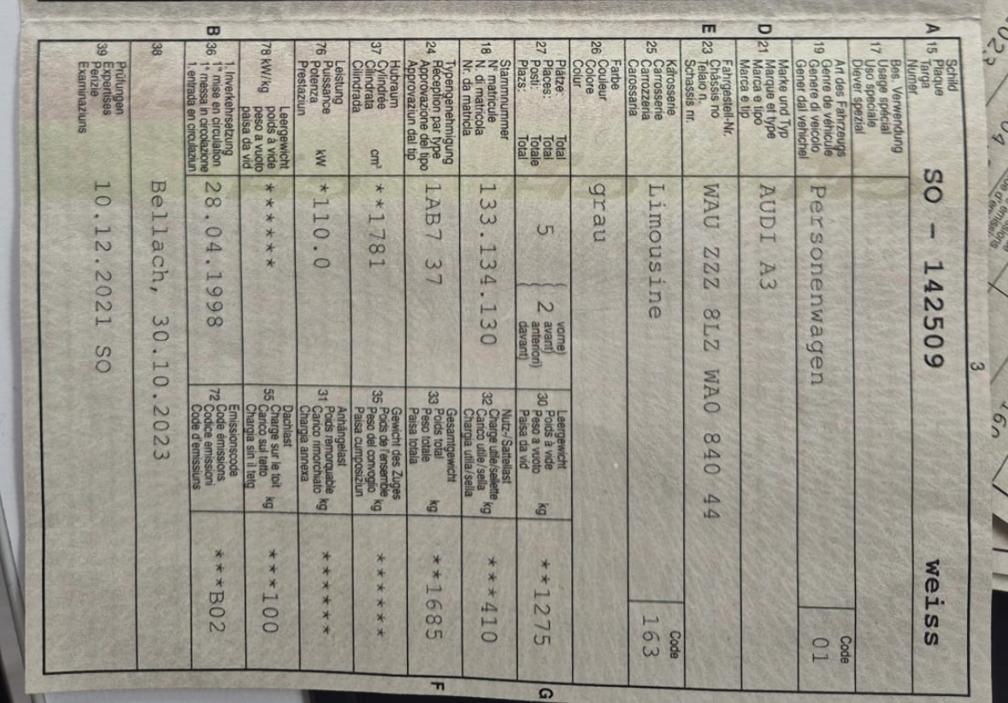 3
A 15 Schild
Plaque
Targa
Numer
SO - 142509 weiss
17 Bes. Verwendung
Usage spécial
Uso speciale
Diever spezial
19 Art des Fahrzeugs
Genre de véhicule
Genere di veicolo
Gener dal vehichel
Personenwagen
Code
01
D 21 Marke und Typ
Marque et type
Marca e tipo
Marca e tip
AUDI A3
E 23 Fahrgestell-Nr.
Châssis no
Telaio n.
Schassis nr.
WAU ZZZ 8LZ WA0 840 44
25 Karosserie
Carrosserie
Carrozzeria
Carossaria
Limousine
Code
163
26 Farbe
Couleur
Colore
Colur
grau
27 Plätze: Total
Places: Total
Posti: Totale
Plazs: Total
5 2
vorne)
avant)
anteriori)
davant)
30 Leergewicht
Poids à vide
Peso a vuoto
Paisa da vid
kg **1275 G
18 Stammnummer
N° matricule
N. di matricola
Nr. da matricla
133.134.130
32 Nutz-/Sattellast
Charge utile/sellette
Carico utile/sella
Chargia utila/sella
kg ***410
24 Typengenehmigung
Réception par type
Approvazione del tipo
Approvaziun dal tip
1AB7 37
33 Gesamtgewicht
Poids total
Peso totale
Paisa totala
kg **1685 F
37 Hubraum
Cylindrée
Cilindrata
Cilindrada
cm³ **1781
35 Gewicht des Zuges
Poids de l'ensemble
Peso del convoglio
Paisa cumposiziun
kg ******
76 Leistung
Puissance
Potenza
Prestaziun
kW *110.0
31 Anhängelast
Poids remorquable
Carico rimorchiato
Chargia annexa
kg ******
78 kW/kg
Leergewicht
poids à vide
peso a vuoto
paisa da vid
******
55 Dachlast
Charge sur le toit
Carico sul tetto
Chargia sin il tetg
kg ***100
B 36 1. Inverkehrsetzung
1re mise en circulation
1a messa in circolazione
1. entrada en circulaziun
28.04.1998
72 Emissionscode
Code émissions
Codice emissioni
Code d'emissiuns
***B02
38 Bellach, 30.10.2023
39 Prüfungen
Expertises
Perizie
Examinaziuns
10.12.2021 SO